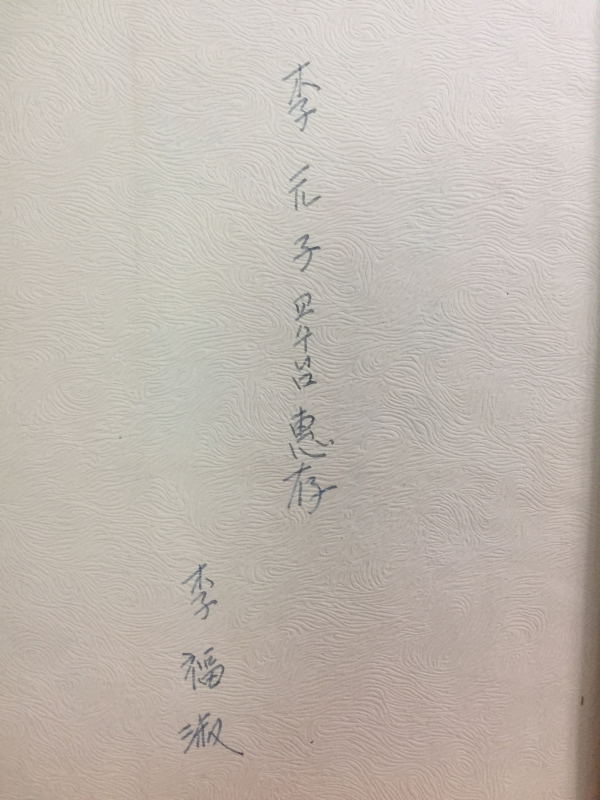 李元子 惠存
李福淑